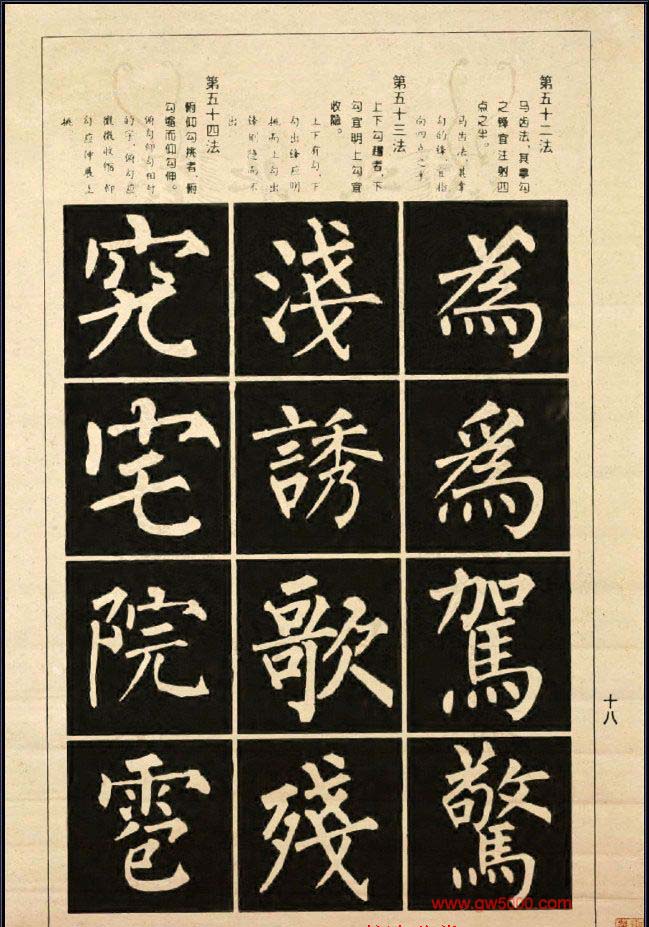 第五十二法
马齿法，其拿勾
之锋宜注射四
点之半。
马齿法，其拿
勾的锋，宜指
向四点之半
第五十三法
上下勾趯者，下
勾宜明上勾宜
收隐。
上下有勾，下
勾出锋应明
挑高上勾出
锋则隐高不
出
第五十四法
俯仰勾挑者，俯
勾缩而仰勾伸。
俯勾仰勾相对
的字，俯勾应
微微收缩仰
勾应伸展上
挑
為
爲
駕
驚
淺
誘
歌
殘
究
宅
院
雹
十八
www.gw5000.com